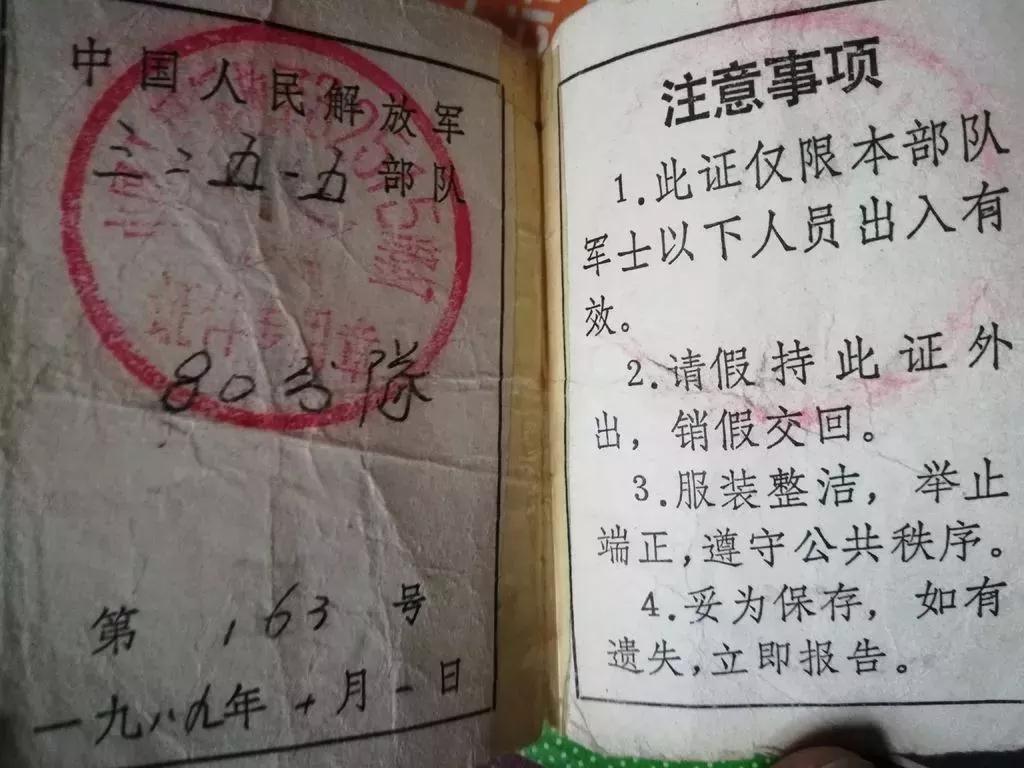 中国人民解放军
三二五一五部队
803队
第 163 号
一九八九年十月一日
注意事项
1.此证仅限本部队
军士以下人员出入有
效。
2.请假持此证外
出，销假交回。
3.服装整洁，举止
端正,遵守公共秩序。
4.妥为保存，如有
遗失,立即报告。